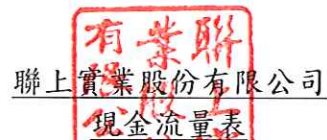 聯上實業股份有限公司
現金流量表